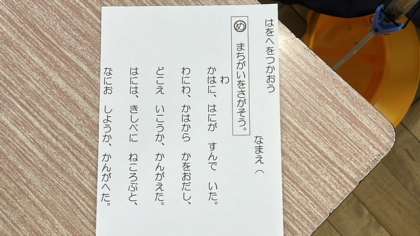 はをへをつかおう
なまえ（
め まちがいをさがそう。
わ
かはに、はにが すんで いた。
わにわ、かはから かをおだし、
どこえ いこうか、かんがえた。
はには、きしべに ねころぶと、
なにお しようか、かんがへた。